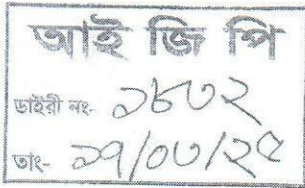 আই জি পি
ডাইরী নং- ১৮৩২
তাং- ১৭/০৩/২৫